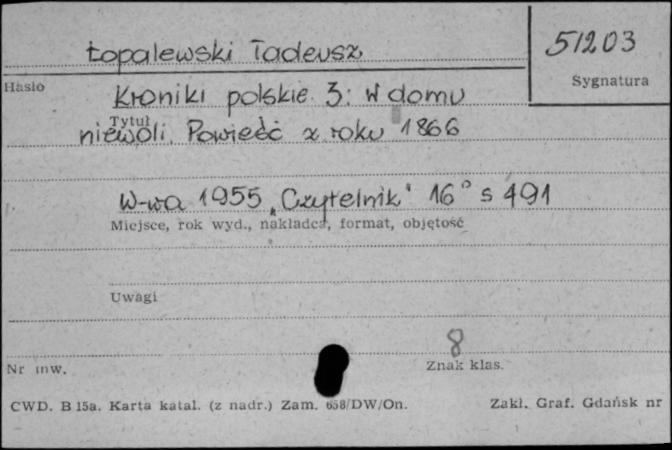 Łopalewski Tadeusz
51203
Hasło
Sygnatura
Kroniki polskie. 3: W domu
Tytuł
niewoli. Powieść z roku 1866
W-wa 1955 „Czytelnik" 16° s 491
Miejsce, rok wyd., nakładca, format, objętość
Uwagi
8
Nr inw.
Znak klas.
CWD. B 15a. Karta katal. (z nadr.) Zam. 658/DW/On.
Zakł. Graf. Gdańsk nr